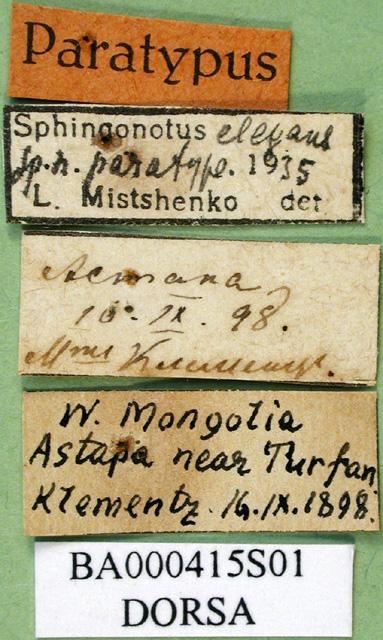 Paratypus
Sphingonotus elegans
sp.n. paratype. 1935
L. Mistshenko det
IX. 98.
W. Mongolia
Astapa near Turfan
Klementz. 16.IX.1898.
BA000415S01
DORSA